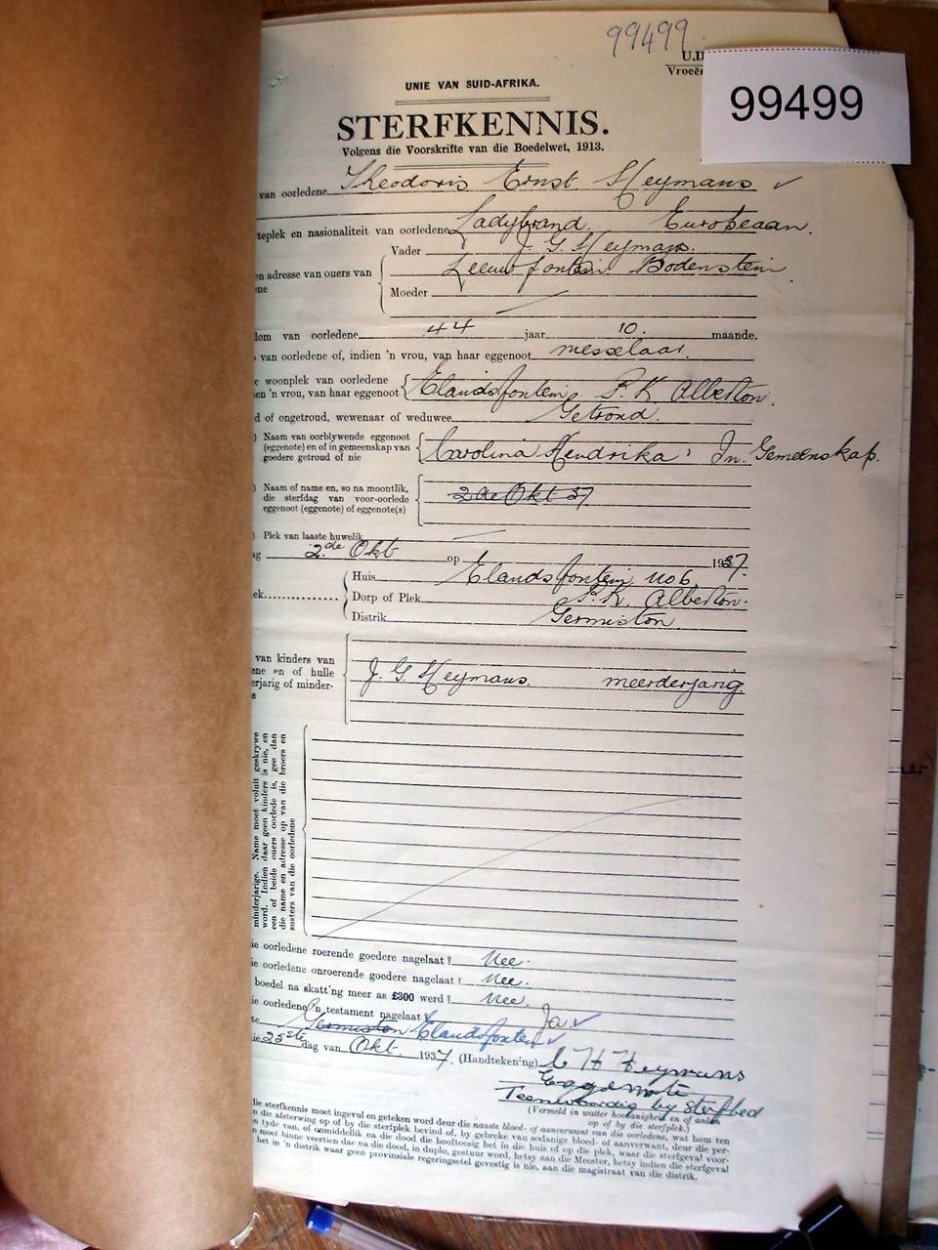 99499
U.D
Vroeë
99499
UNIE VAN SUID-AFRIKA.
STERFKENNIS.
Volgens die Voorskrifte van die Boedelwet, 1913.
van oorledene Theodoris Ernst Heymans
teplek en nasionaliteit van oorledene Ladybrand Europeaan.
Vader J. G. Heymans.
n adresse van ouers van Leeuwfontein Bodenstein
ene
Moeder
dom van oorledene 44 jaar 10. maande.
van oorledene of, indien 'n vrou, van haar eggenoot messelaar.
woonplek van oorledene
ien 'n vrou, van haar eggenoot Elandsfontein P.K. Alberton.
d of ongetroud, wewenaar of weduwee Getroud.
) Naam van oorblywende eggenoot
(eggenote) en of in gemeenskap van Carolina Hendrika, In Gemeenskap.
goedere getroud of nie
) Naam of name en, so na moontlik,
die sterfdag van voor-oorlede 2de Okt 37
eggenoot (eggenote) of eggenote(s)
) Plek van laaste huwelik
ag 2de Okt op 1937.
Huis Elandsfontein no 6.
ek Dorp of Plek P.K. Alberton.
Distrik Germiston
van kinders van
ene en of hulle
erjarig of minder- J. G. Heymans. meerderjarig.
s
minderjarige. Name moet voluit geskrywe
word. Indien daar geen kinders is nie, en
een of beide ouers oorlede is, gee dan
die name en adresse op van die broers en
susters van die oorledene
ie oorledene roerende goedere nagelaat? Nee.
ie oorledene onroerende goedere nagelaat? Nee.
boedel na skatting meer as £300 werd? Nee.
ie oorledene 'n testament nagelaat? Ja.
te Germiston Elandsfontein
ie 25ste dag van Okt. 1937. (Handtekening) C H Heymans
Eggenote
Teenwoordig by sterfbed
(Vermeld in watter hoedanigheid en of
op of by die sterfplek.)
die sterfkennis moet ingevul en geteken word deur die naaste bloed- of aanverwant van die oorledene, wat hom ten
n die afsterwing op of by die sterfplek bevind of, by gebreke van sodanige bloed- of aanverwant, deur die per-
n tyde van, of onmiddellik na die dood die hooftoesig het in die huis of op die plek, waar die sterfgeval voor-
n moet binne veertien dae na die dood, in duplo, gestuur word, hetsy aan die Meester, hetsy indien die sterfgeval
het in 'n distrik waar geen provinsiale regeringsetel gevestig is nie, aan die magistraat van die distrik.